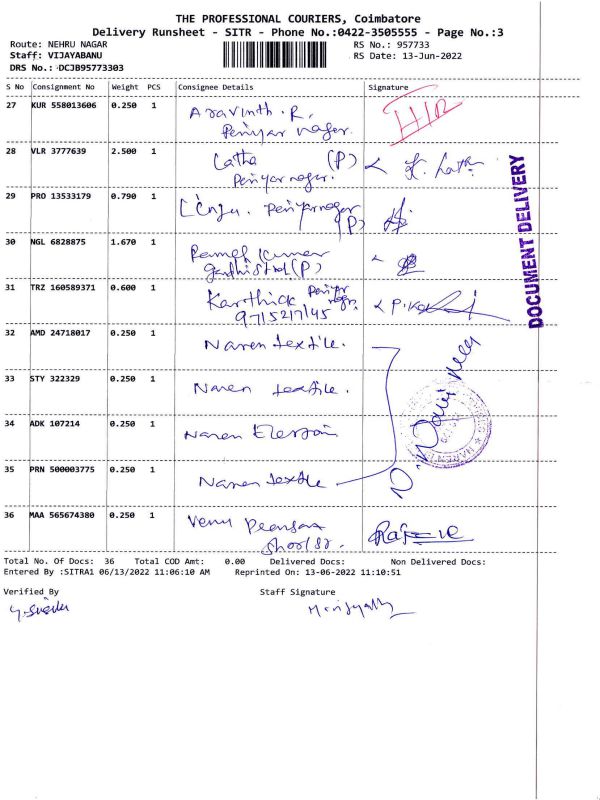 THE PROFESSIONAL COURIERS, Coimbatore
Delivery Runsheet - SITR - Phone No.:0422-3505555 - Page No.:3
Route: NEHRU NAGAR RS No.: 957733
Staff: VIJAYABANU RS Date: 13-Jun-2022
DRS No.: DCJB95773303
S No Consignment No Weight PCS Consignee Details Signature
27 KUR 558013606 0.250 1 Aravinth.R.
Periyar nager.
28 VLR 3777639 2.500 1 Latha (P)
Periyar nager.
29 PRO 13533179 0.790 1 Periyar nager
(P)
30 NGL 6828875 1.670 1 Ramesh Kumar
(P)
31 TRZ 160589371 0.600 1 Karthick Periyar
9715217145 nagr.
32 AMD 24718017 0.250 1 Naren textile.
33 STY 322329 0.250 1 Naren textile.
34 ADK 107214 0.250 1 Naren
35 PRN 500003775 0.250 1 Naren textile
36 MAA 565674380 0.250 1 Venu
DOCUMENT DELIVERY
Total No. Of Docs: 36 Total COD Amt: 0.00 Delivered Docs: Non Delivered Docs:
Entered By :SITRA1 06/13/2022 11:06:10 AM Reprinted On: 13-06-2022 11:10:51
Verified By Staff Signature